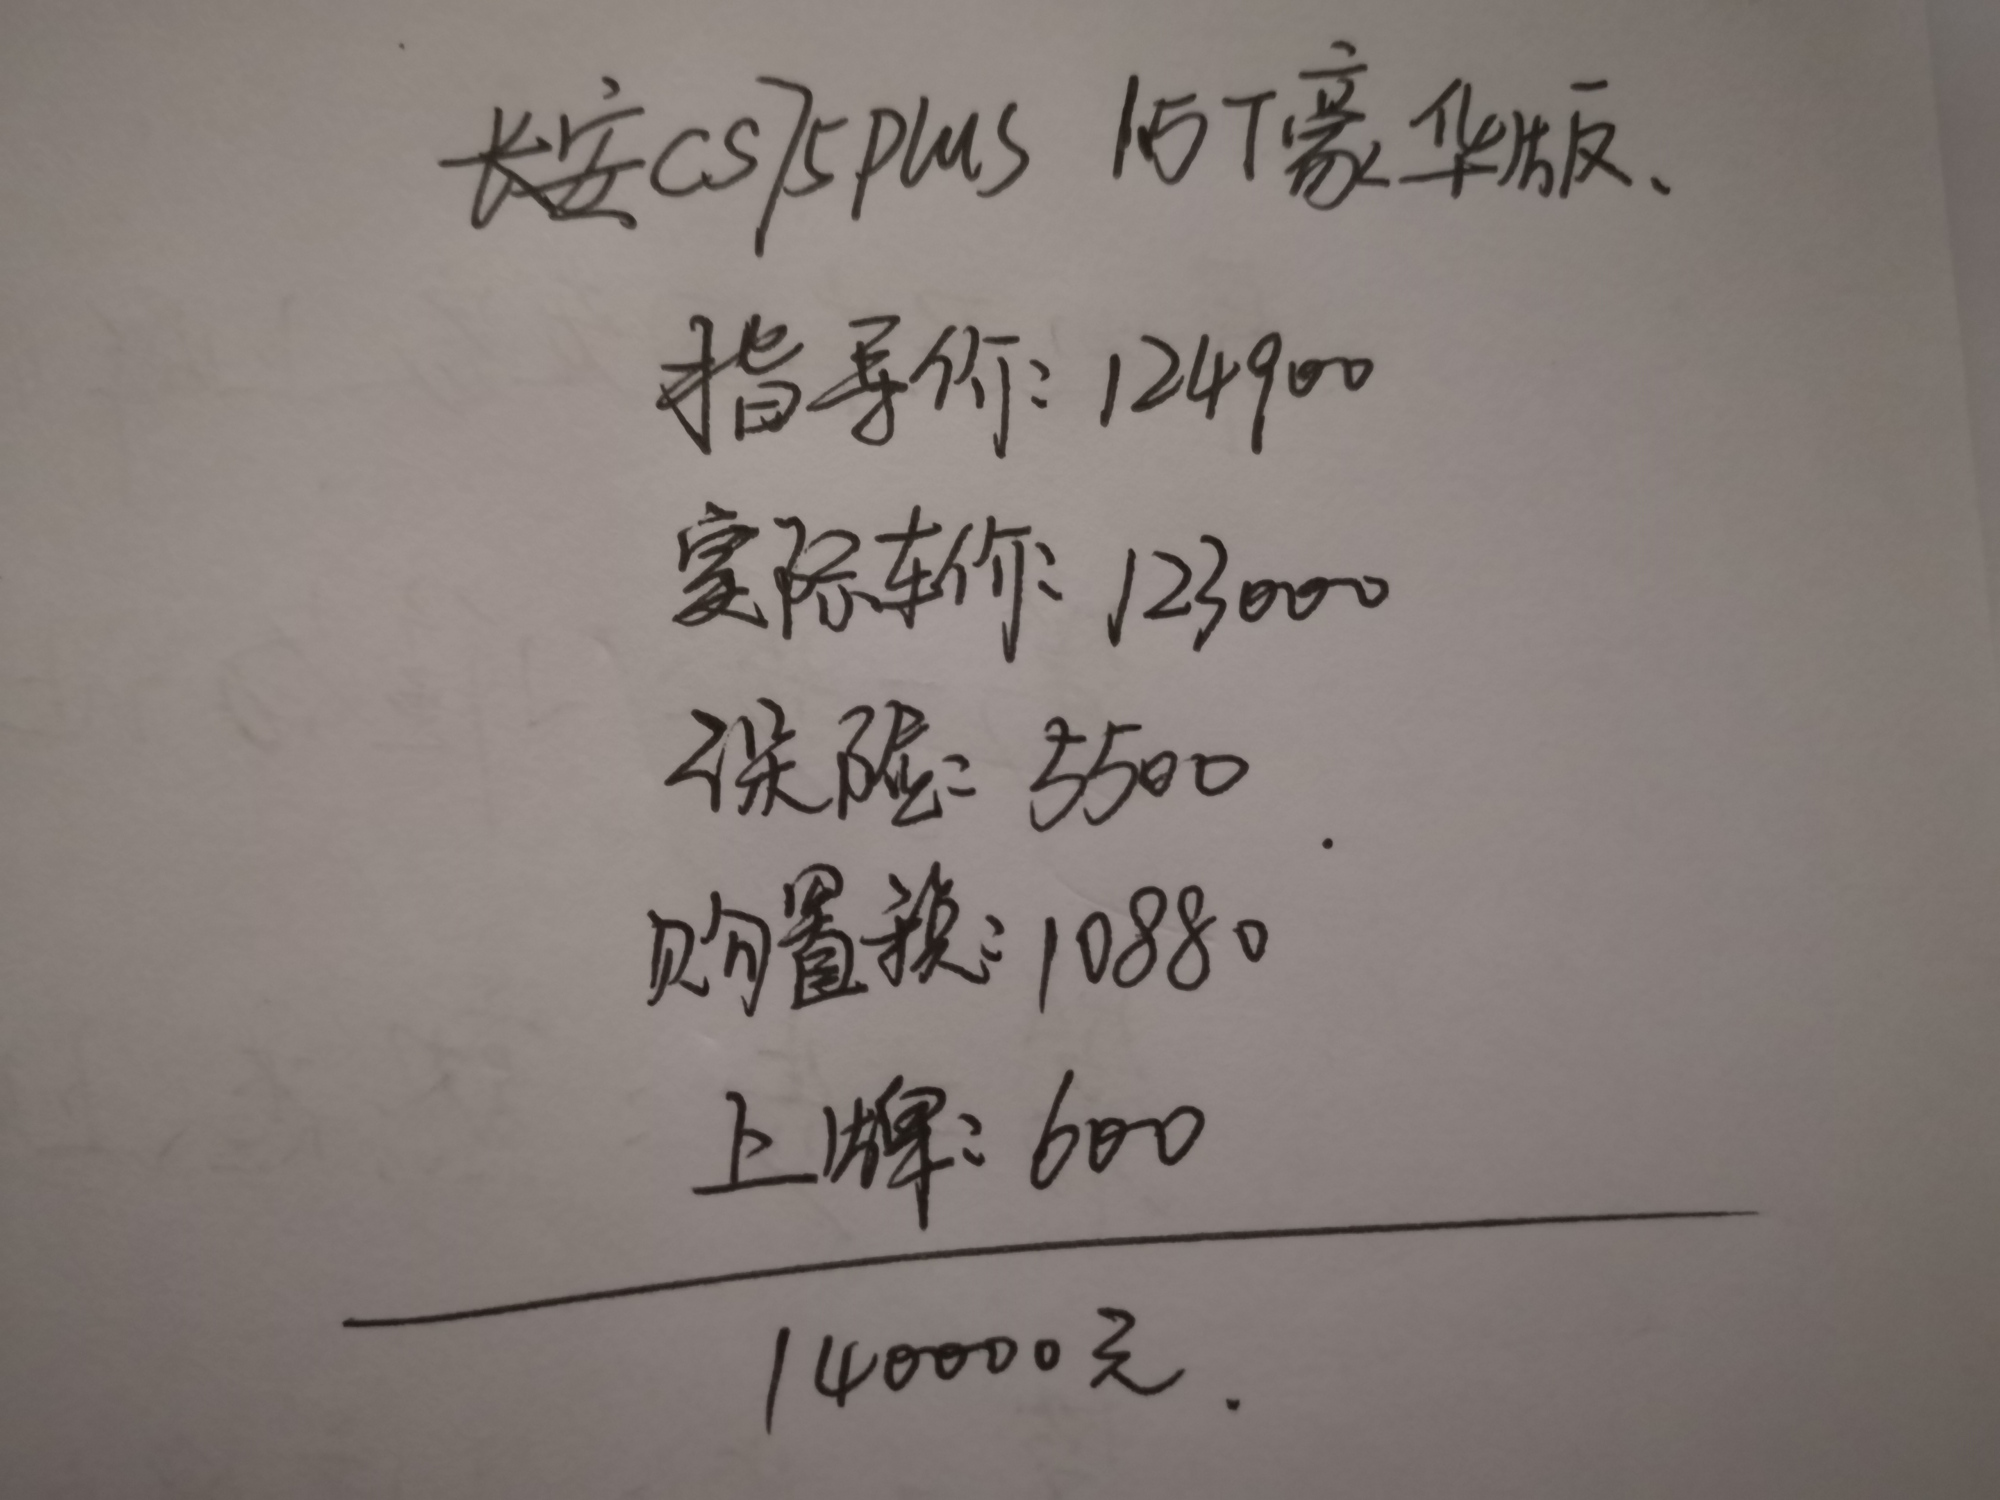 长安CS75plus 15T豪华版、
指导价：124900
实际车价：123000
保险：5500
购置税：10880
上牌：600
140000元.